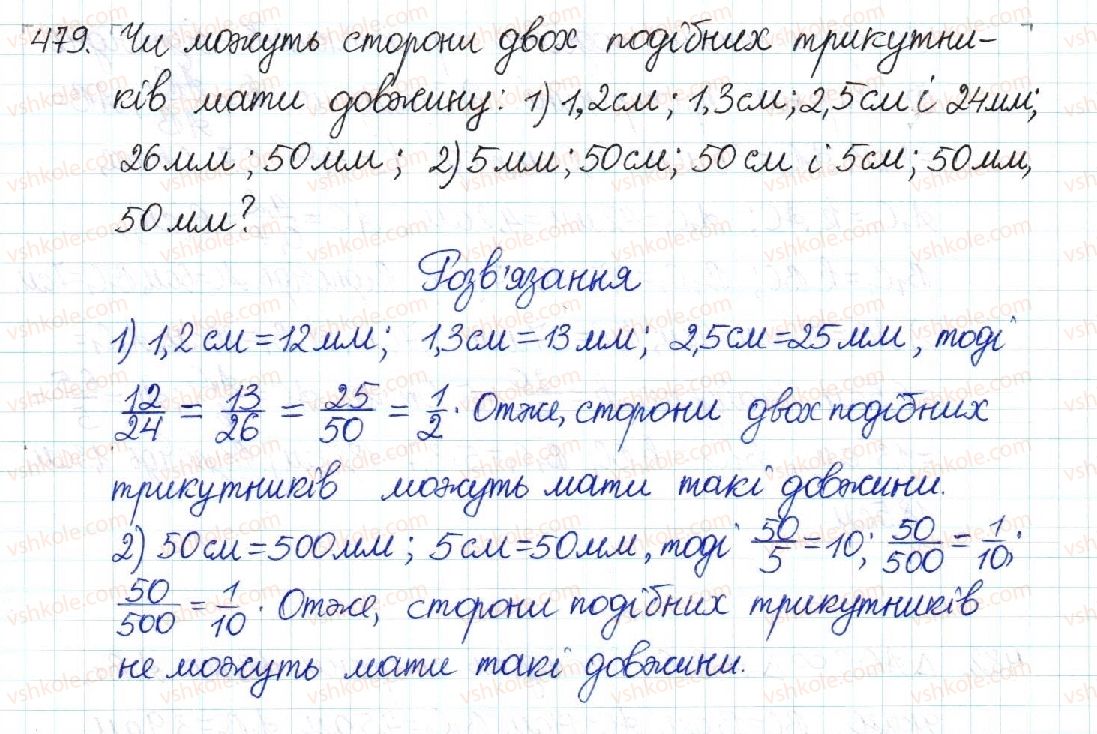 479. Чи можуть сторони двох подібних трикутни-
ків мати довжину: 1) 1,2см; 1,3см; 2,5см і 24мм;
26мм; 50мм; 2) 5мм; 50см; 50см і 5см; 50мм,
50мм?
Розв'язання
1) 1,2см=12мм; 1,3см=13мм; 2,5см=25мм, тоді
12/24 = 13/26 = 25/50 = 1/2. Отже, сторони двох подібних
трикутників можуть мати такі довжини.
2) 50см=500мм; 5см=50мм, тоді 50/5=10; 50/500=1/10;
50/500=1/10. Отже, сторони подібних трикутників
не можуть мати такі довжини.